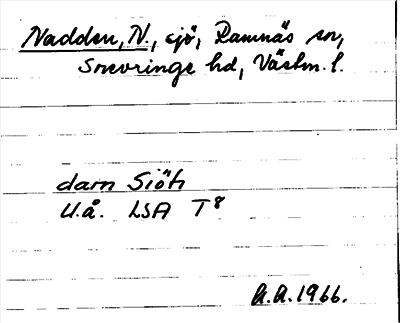 Nadden, N., sjö, Ramnäs sn,
Snevringe hd, Västm. l.
dam Siöh
U.å. LSA T8
A.A. 1966.